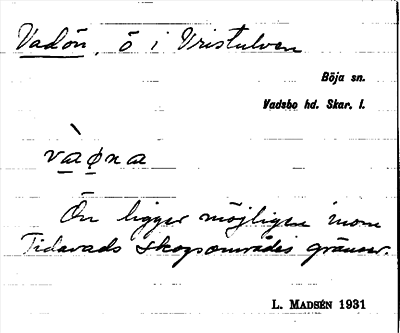 Vadön, ö i Vristulven
Böja sn.
Vadsbo hd. Skar. l.
vàøna
Ön ligger möjligen inom
Tidavads skogsområdes gränser.
L. MADSÉN 1931